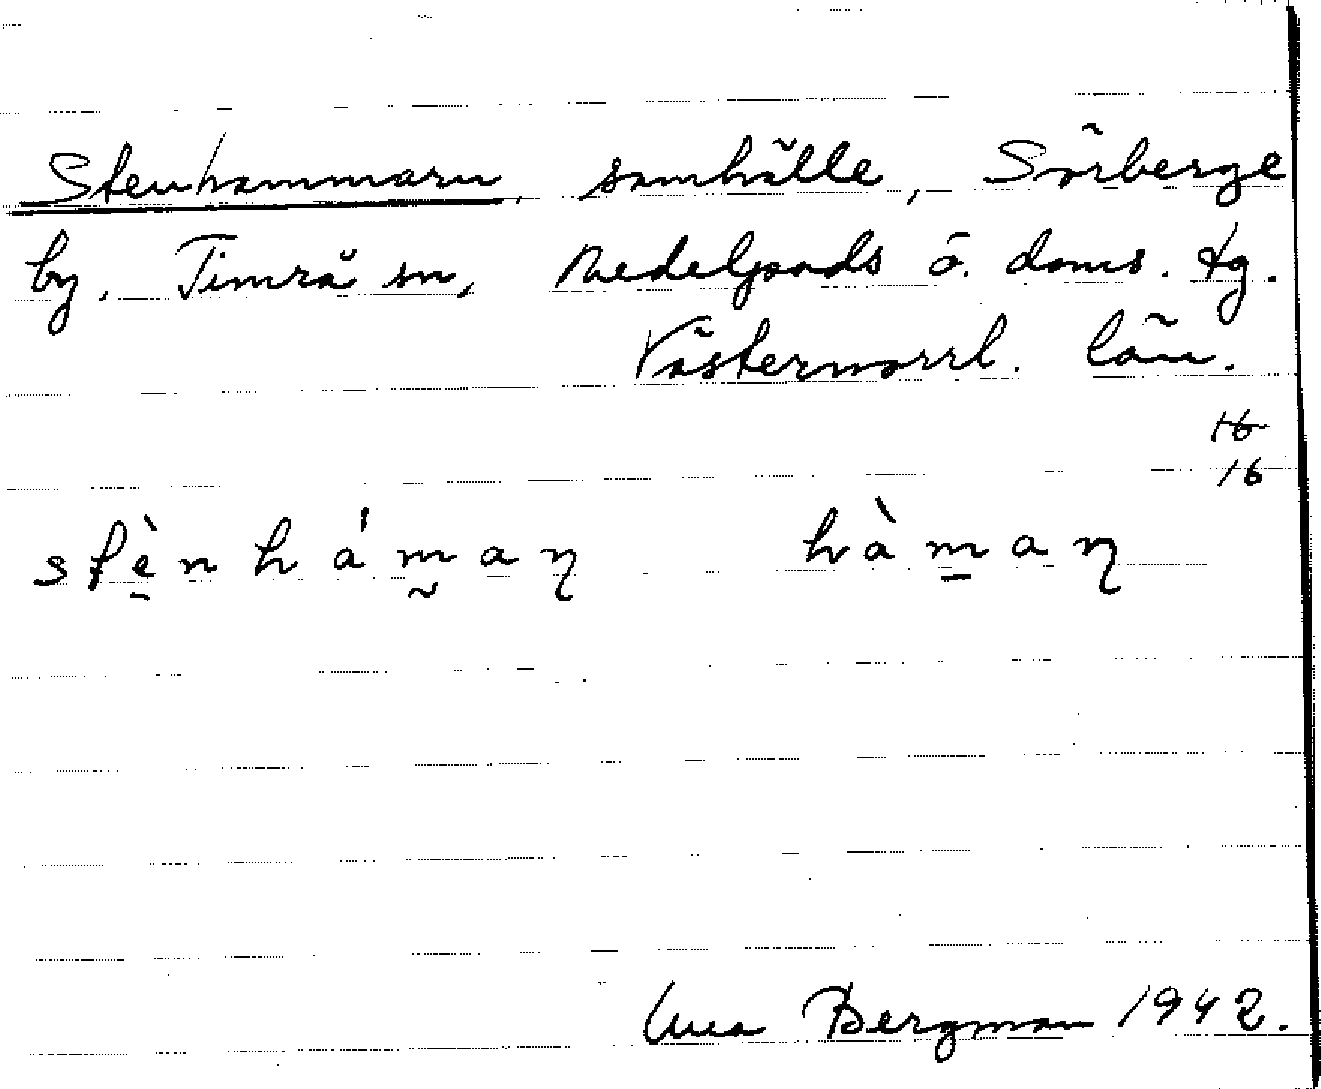 Stenhammarn, samhälle, Sörberge
by, Timrå sn, Medelpads ö. doms. tg.
Västernorrl. län.
16
16
stè̱nhám̰aɳ hàm̱aɳ
Bergman 1942.